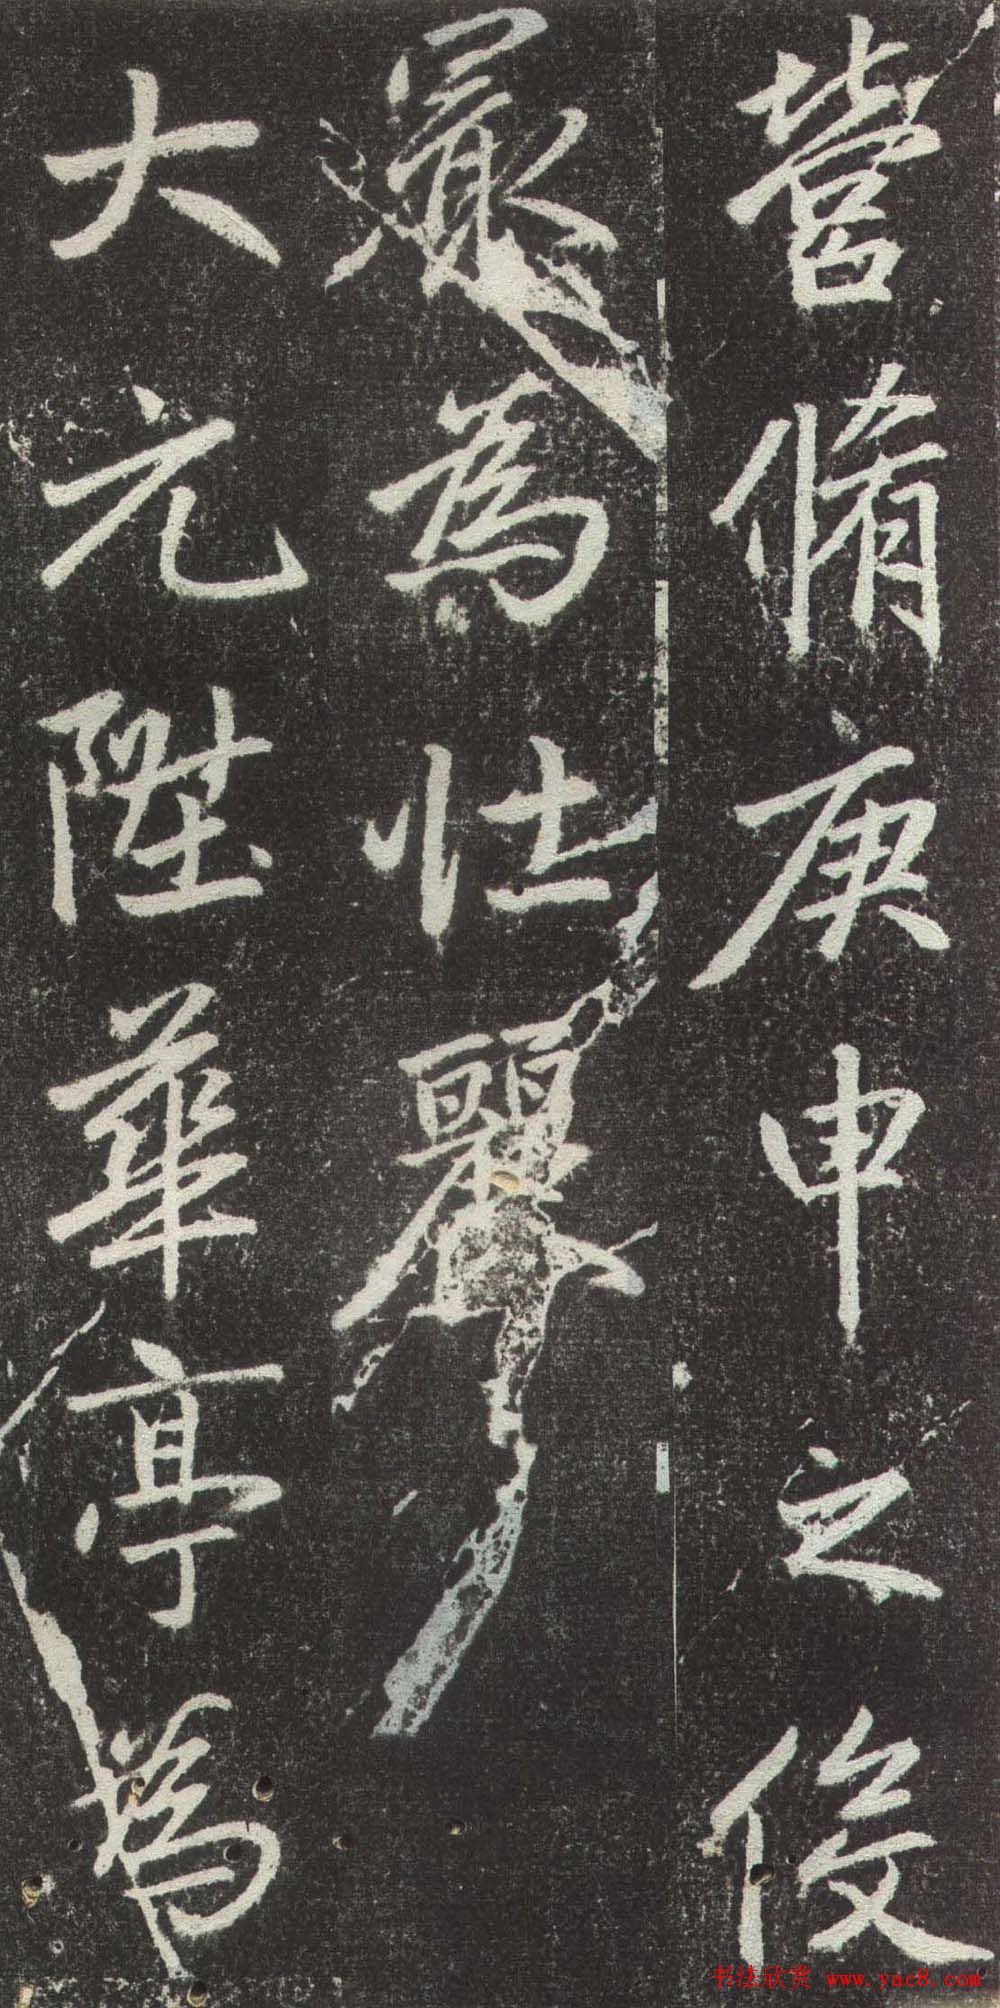 營脩庚申之後
最為壯麗
大元陞華亭為
书法欣赏 www.yac8.com